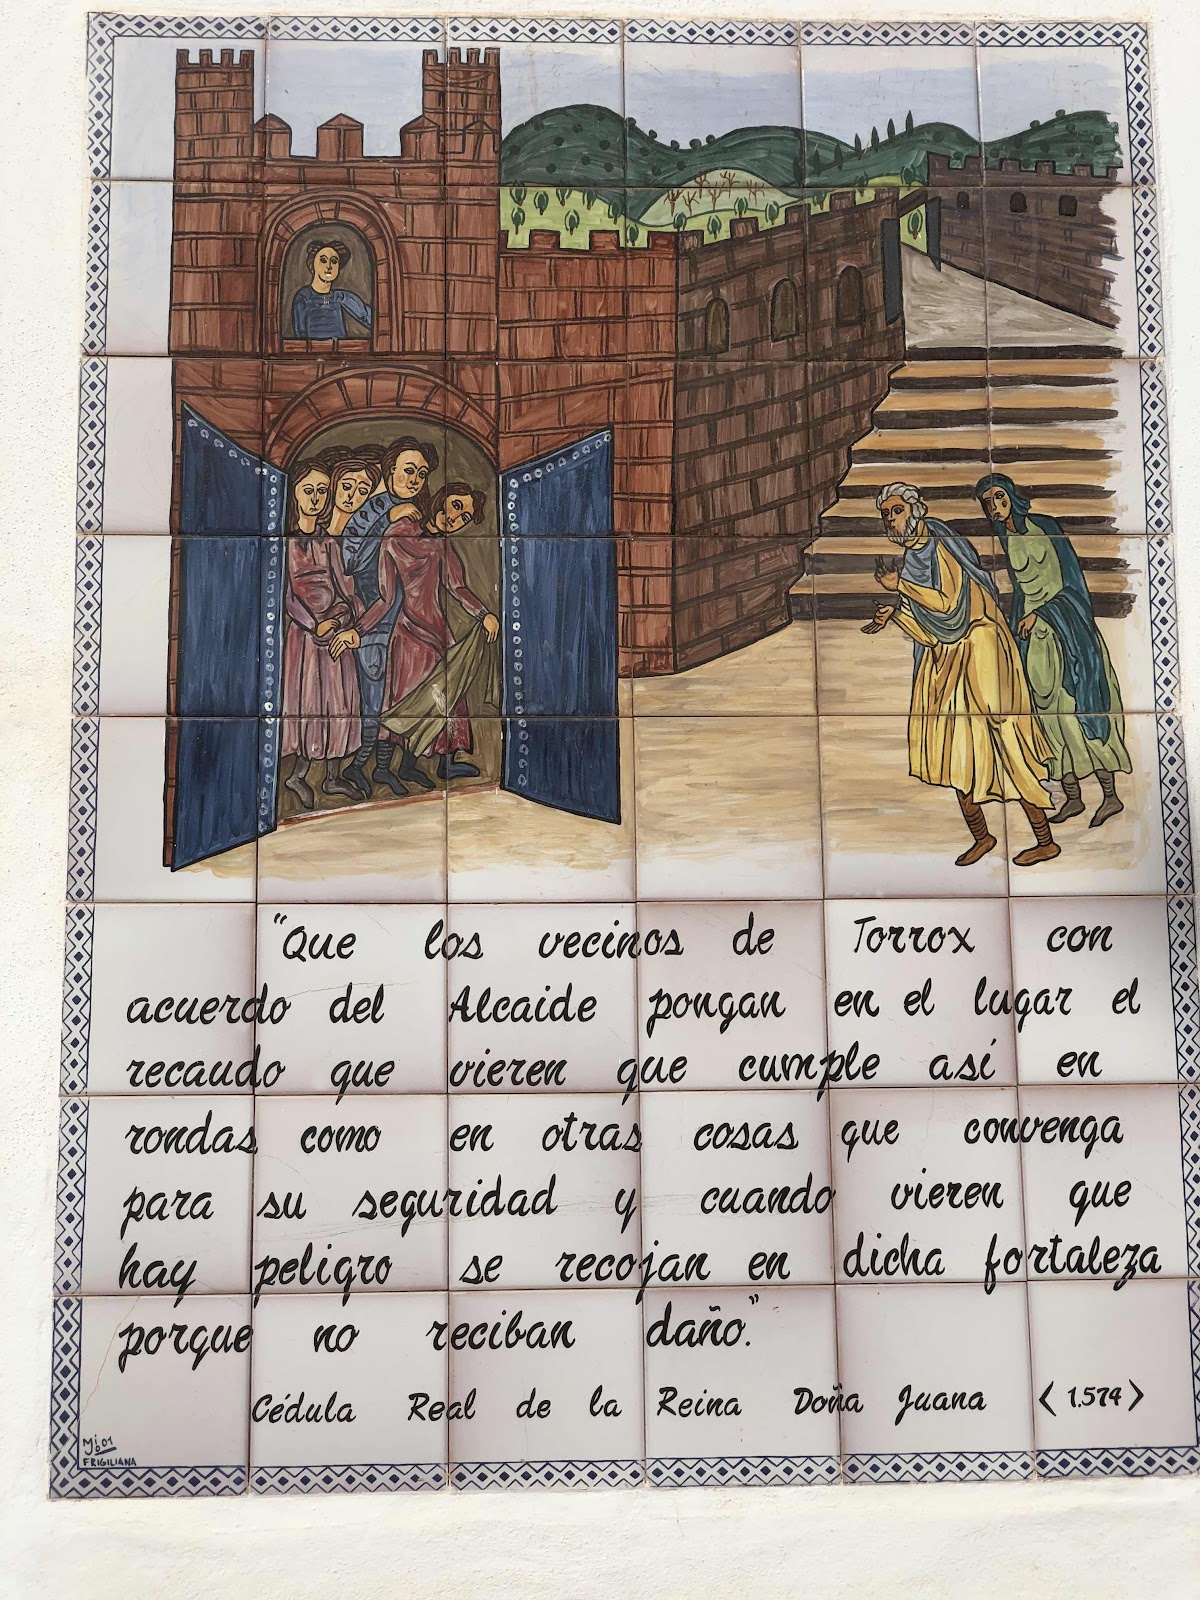 "Que los vecinos de Torrox con
acuerdo del Alcaide pongan en el lugar el
recaudo que vieren que cumple así en
rondas como en otras cosas que convenga
para su seguridad y cuando vieren que
hay peligro se recojan en dicha fortaleza
porque no reciban daño."
Cédula Real de la Reina Doña Juana <1.574>
FRIGILIANA